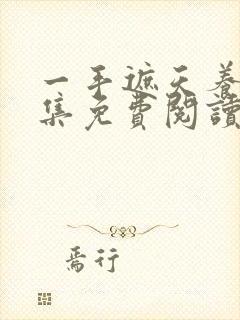 一手遮天養
集免費閱讀
焉行